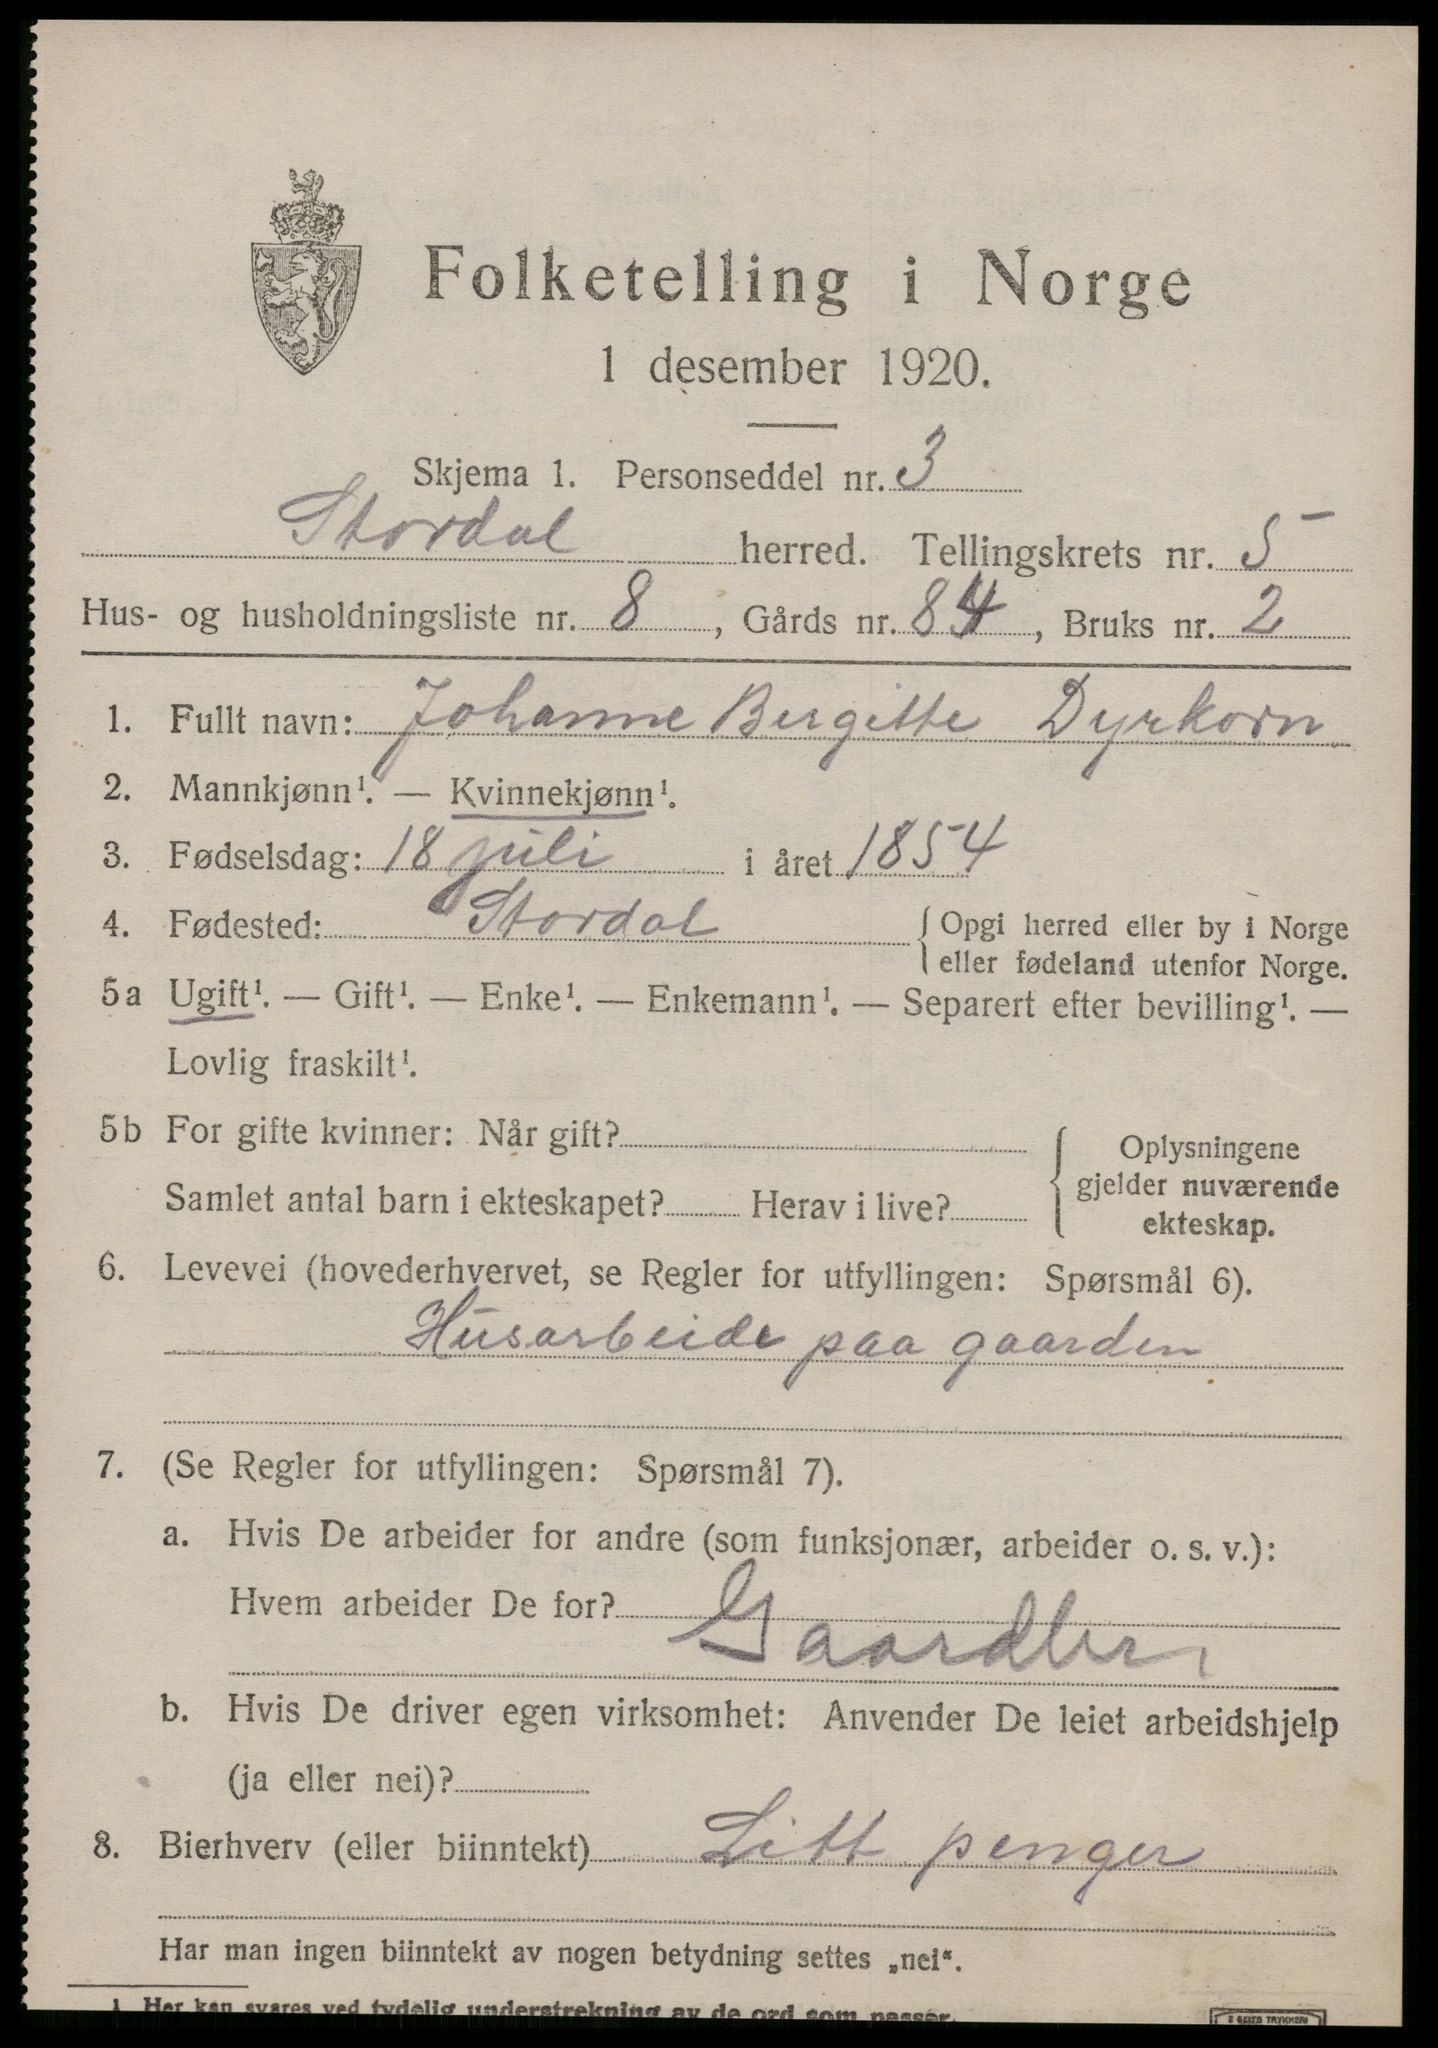 Folketelling i Norge
1 desember 1920.
Skjema 1. Personseddel nr. 3
Stordal herred. Tellingskrets nr. 5
Hus- og husholdningsliste nr. 8, Gårds nr. 84, Bruks nr. 2
1. Fullt navn: Johanne Bergitte Dyrkorn
2. Mannkjønn¹. — Kvinnekjønn¹.
3. Fødselsdag: 18 juli i året 1854
4. Fødested: Stordal { Opgi herred eller by i Norge
eller fødeland utenfor Norge.
5a Ugift¹. — Gift¹. — Enke¹. — Enkemann¹. — Separert efter bevilling¹. —
Lovlig fraskilt¹.
5b For gifte kvinner: Når gift?
Samlet antal barn i ekteskapet? Herav i live?
{ Oplysningene
gjelder nuværende
ekteskap.
6. Levevei (hovederhvervet, se Regler for utfyllingen: Spørsmål 6).
Husarbeide paa gaarden
7. (Se Regler for utfyllingen: Spørsmål 7).
a. Hvis De arbeider for andre (som funksjonær, arbeider o. s. v.):
Hvem arbeider De for?
b. Hvis De driver egen virksomhet: Anvender De leiet arbeidshjelp
(ja eller nei)?
8. Bierhverv (eller biinntekt) Litt penger
Har man ingen biinntekt av nogen betydning settes „nei“.
1 Her kan svares ved tydelig understrekning av de ord som passer.